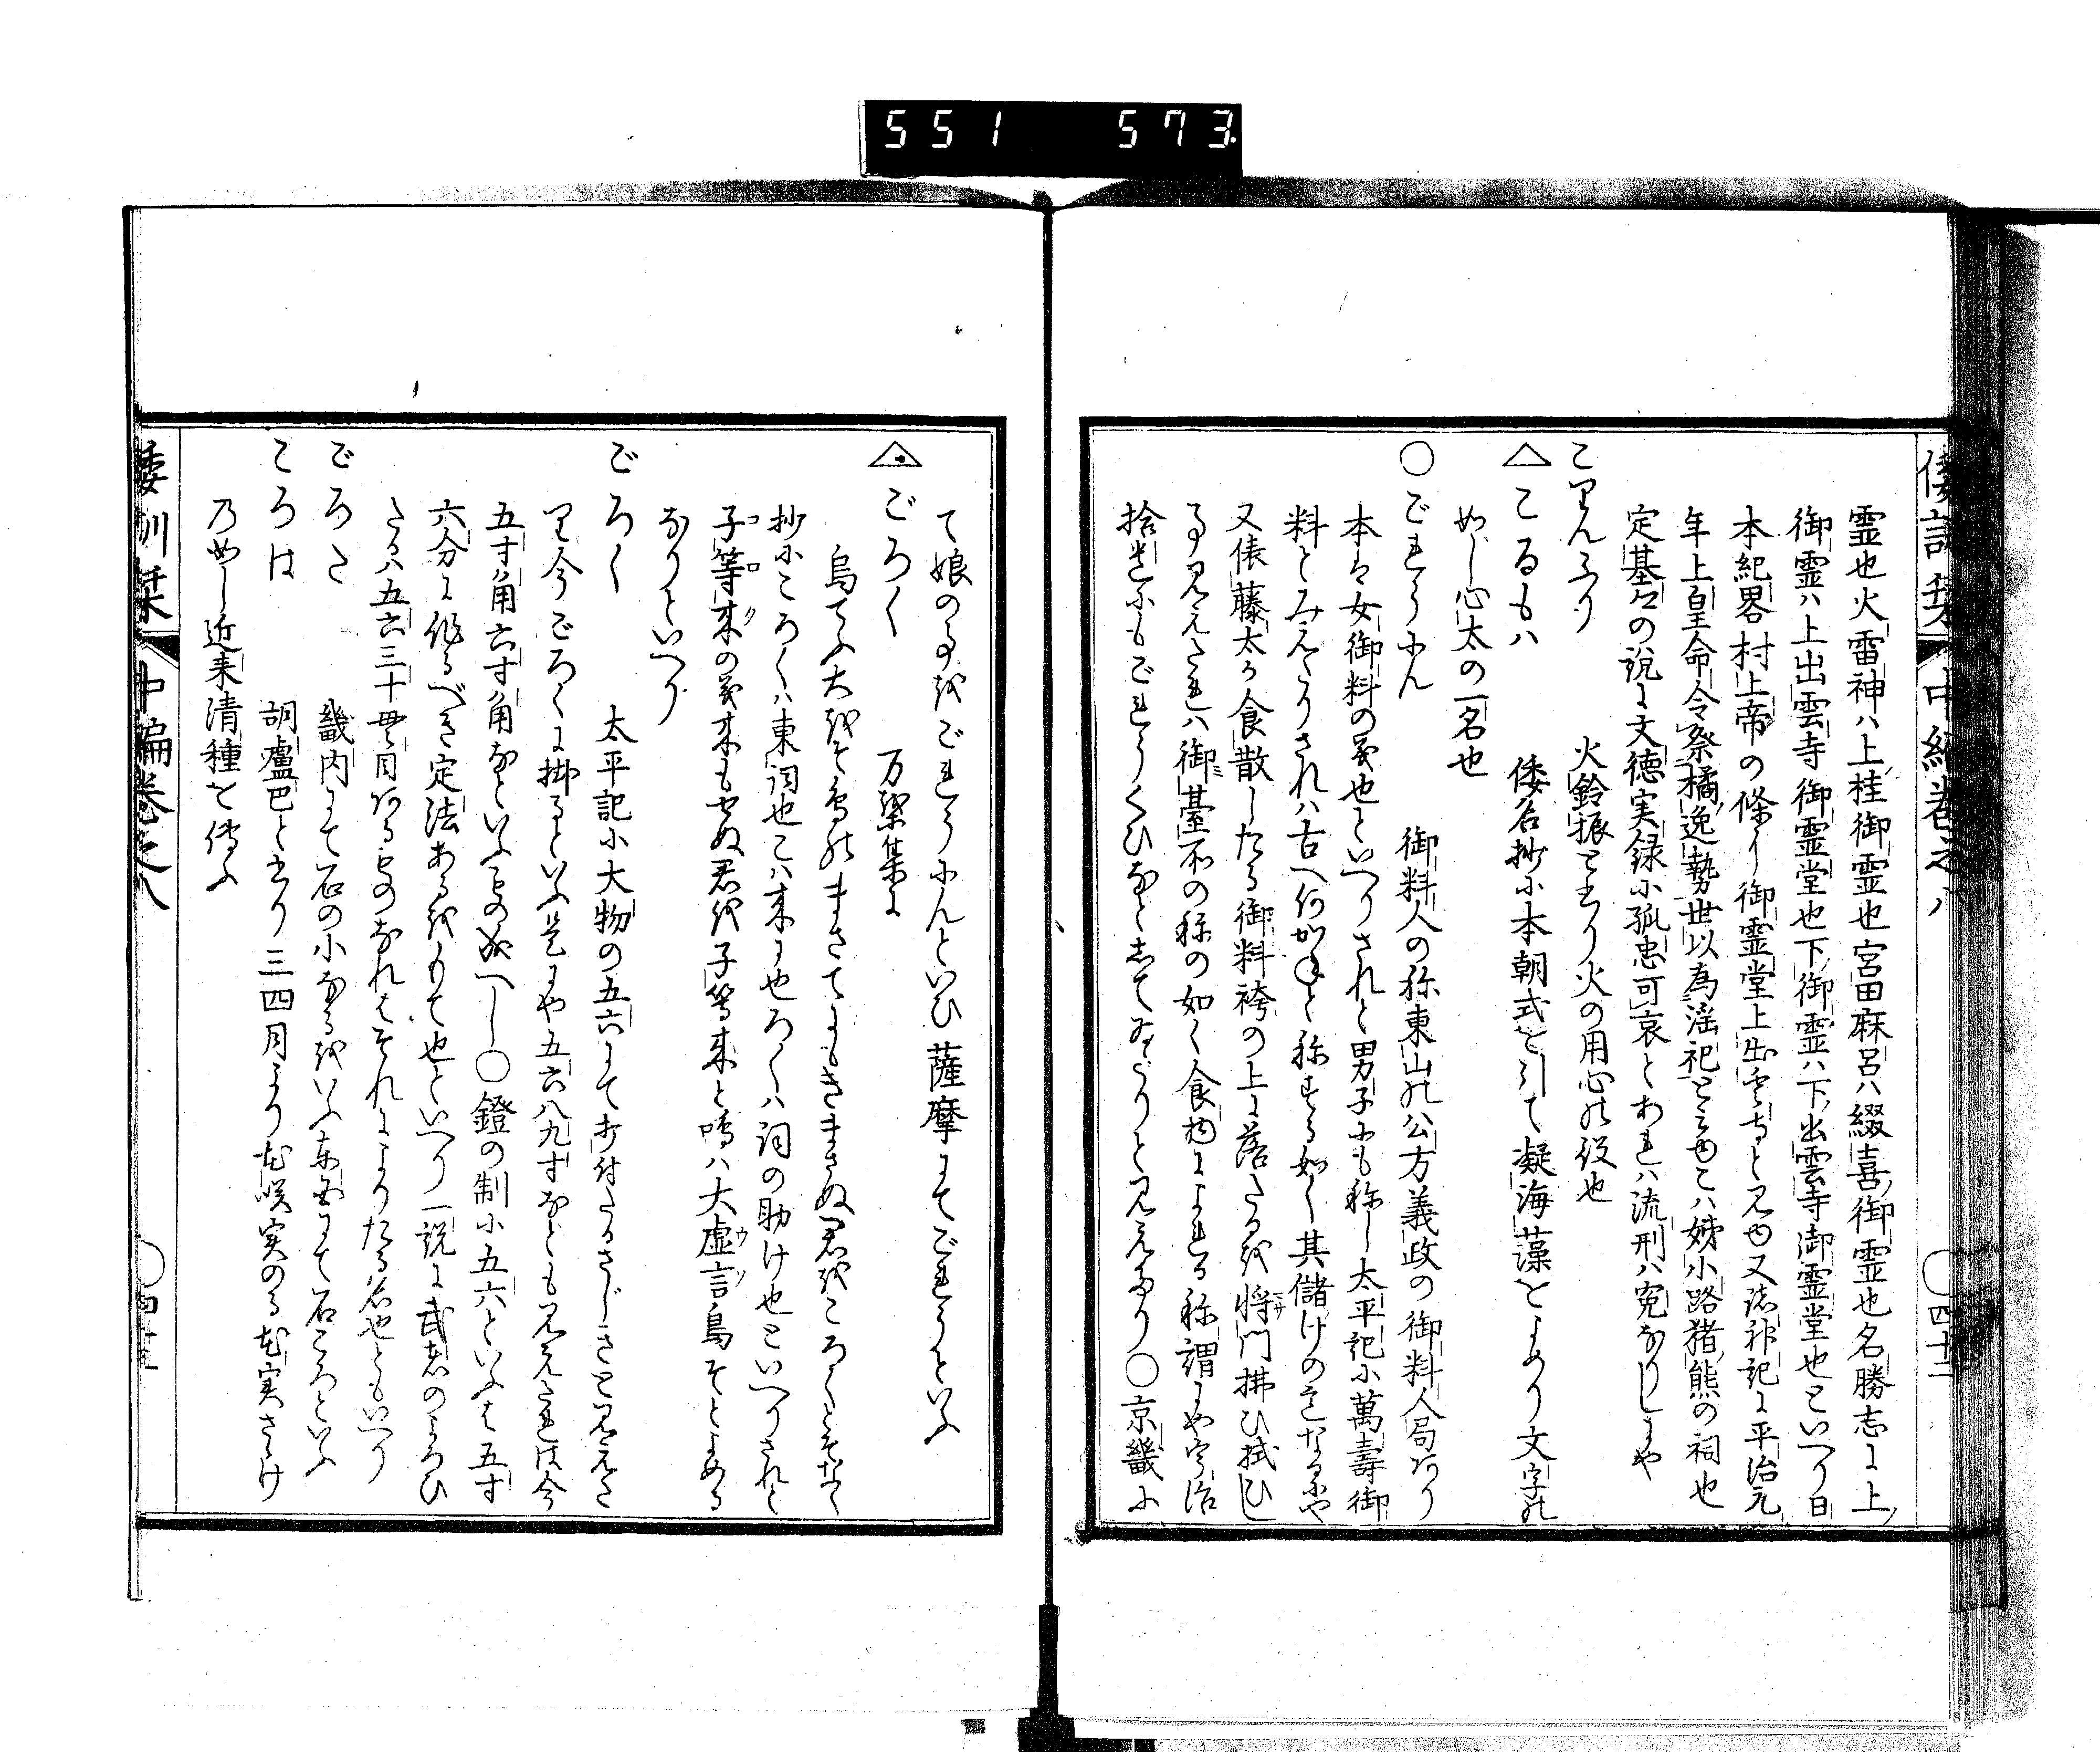 551 573
倭訓栞 中編巻之八 ○四十二
霊也火雷神ハ上桂御霊也宮田麻呂ハ綴喜御霊也名勝志に上
御霊ハ上出雲寺御霊堂也下御霊ハ下出雲寺御霊堂也といへり日
本紀畧村上帝の條に御霊堂上出雲寺と見ゆ又諸社記に平治元
年上皇命令祭橘逸勢世以為淫祀と見ゆこハ姉小路猪熊の祠也
定基々の説に文徳実録に孤忠可哀とあれハ流刑ハ冤なりしにや
こりんふり 火鈴振と書り火の用心の役也
△こるもハ 倭名抄に本朝式を引て凝海藻をよめり文字の
めし心太の一名也
○ごれうにん 御料人の称東山の公方義政の御料人局あり
本は女御料の義也といへりされと男子にも称し太平記に萬壽御
料とみえたりされハ古へ何かねと称する如く其儲けの意なるにや
又俵藤太か食散したる御料袴の上に落たるを将門拂ひ拭ひし
事見えたれハ御臺所の称の如く食物によれる称謂にや宇治
拾遺にもごれうくひなとしてゐたりと見えたり○京畿に
て娘の事をごれうにんといひ薩摩にてごれうといふ
△ごろく 万葉集に
烏てふ大をそ鳥のまさてにもきまさぬ君をころくとそなく
抄にころくハ東詞也こハ来に也ろくハ詞の助け也といへりされと
子等来の義来もせぬ君を子等来と鳴ハ大虚言鳥そとよめる
なりといへり
ごろく 太平記に大物の五六にて打付たるさじきと見えた
り今ごろくに掛るといふ是にや五六八九寸なとも見えたれは今
五寸角六寸角なといふもの成へし○鐙の制に五六といふは五寸
六分に作るべき定法あるをもて也といへり一説に武者のよろひ
たるハ五六三十貫目あるものなれはそれによりたる名也ともいへり
ごろた 畿内にて石の小なるをいふ東国にて石ころといふ
ころは 胡盧巴と書り三四月より花咲実のる花実さゝけ
乃めし近来清種を傳ふ
倭訓栞 中編巻之八 ○四十三